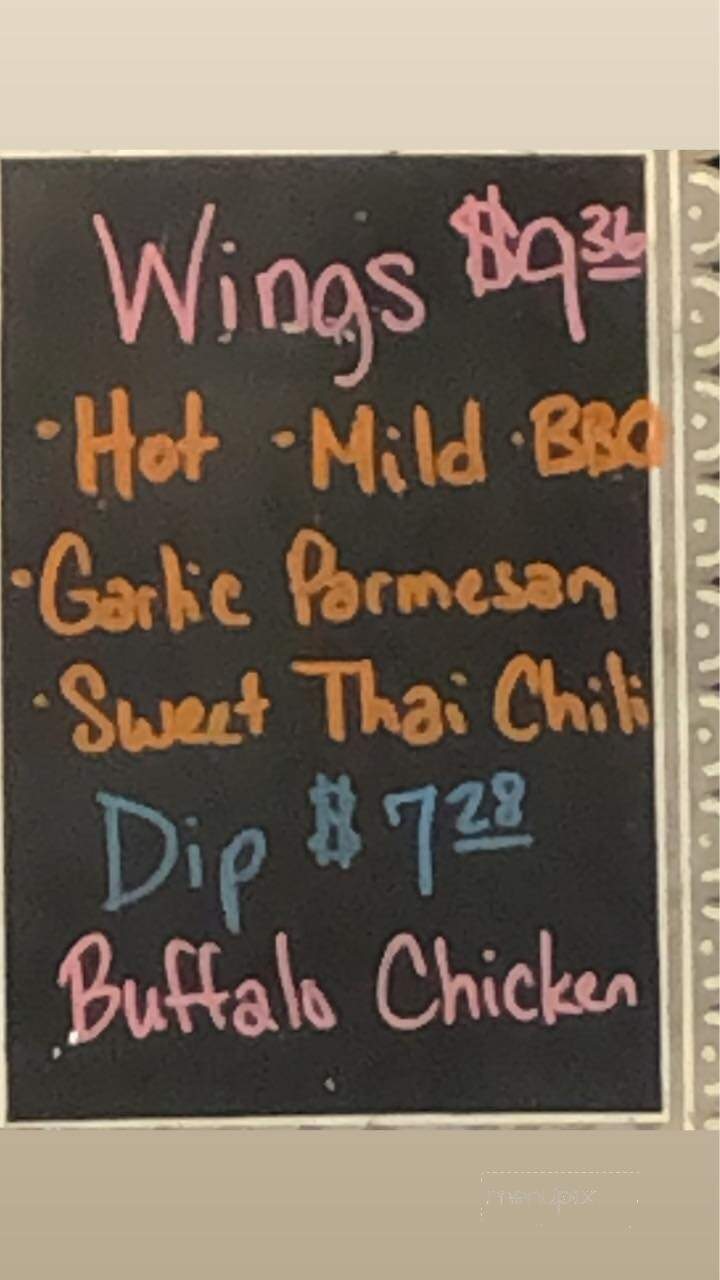 Wings $9.36
·Hot ·Mild ·BBQ
·Garlic Parmesan
·Sweet Thai Chili
Dip $7.28
Buffalo Chicken
menupix